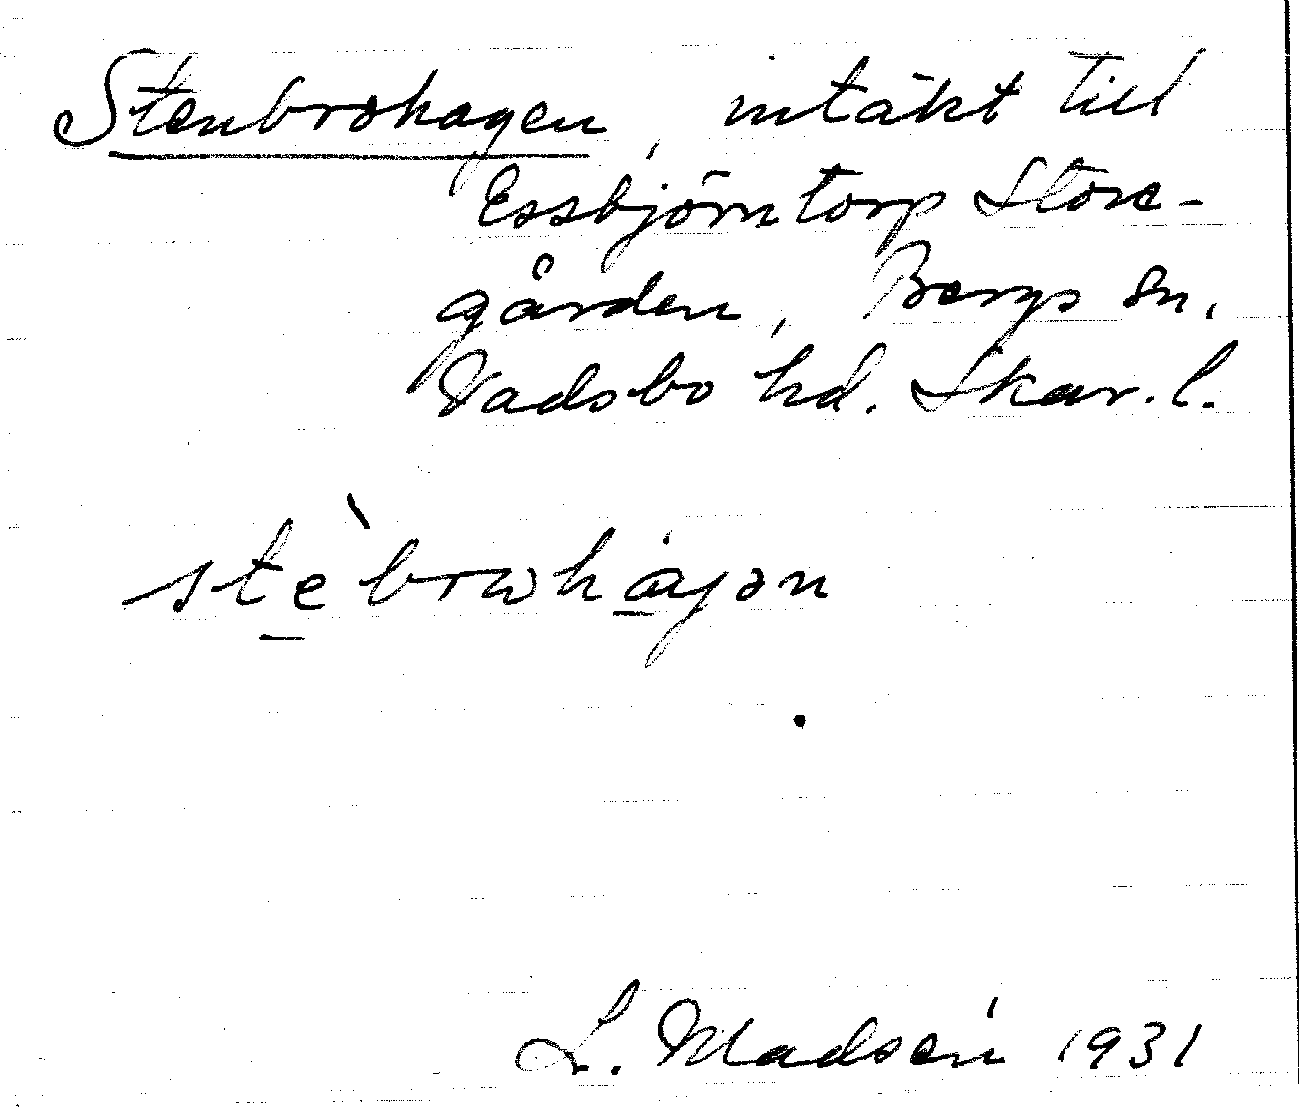 Stenbrohagen, intäkt till
Essbjörntorp Store-
gården, Bergs sn.
Vadsbo hd. Skar. l.
stè̠brωha̠gən
L. Madsén 1931